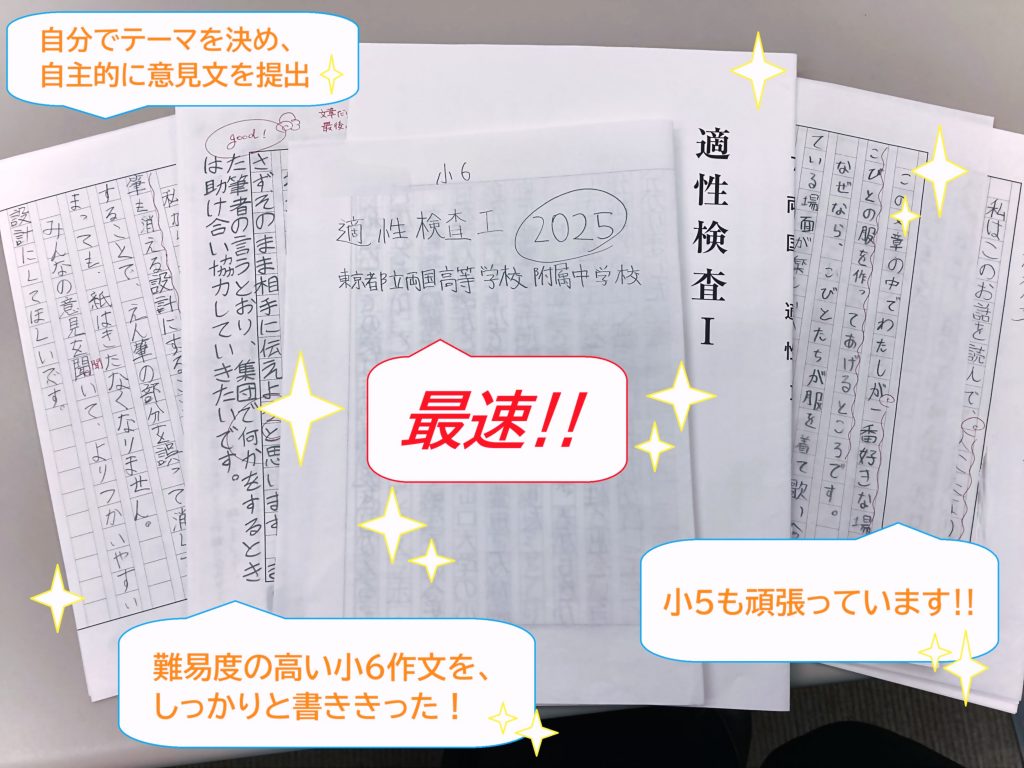 自分でテーマを決め、
自主的に意見文を提出
good!
小6
適性検査I
2025
東京都立両国高等学校附属中学校
適性検査I
最速!!
難易度の高い小6作文を、
しっかりと書ききった!
小5も頑張っています!!
私はこのお話を読んで、
この文章の中でわたしが一番好きな場
こびとの服を作ってあげるところです。
なぜなら、こびとたちが服を着て歌い
ている場面が楽し
さずそのまま相手に伝えようと思います
た筆者の言うとおり、集団で何かをするとき
は助け合い協力していきたいです。
筆も消える設計にするこ
することで、えん筆の部分を誤って消し
まっても、紙はきたなくなりません。
みんなの意見を聞いて、よりつかいやすい
設計にしてほしいです。